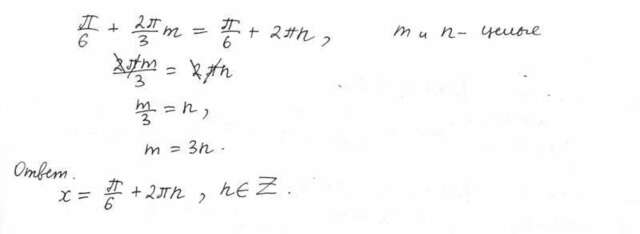 π/6 + 2π/3 m = π/6 + 2πn, m и n - целые
2πm/3 = 2πn
m/3 = n,
m = 3n.
Ответ.
x = π/6 + 2πn, n ∈ Z.